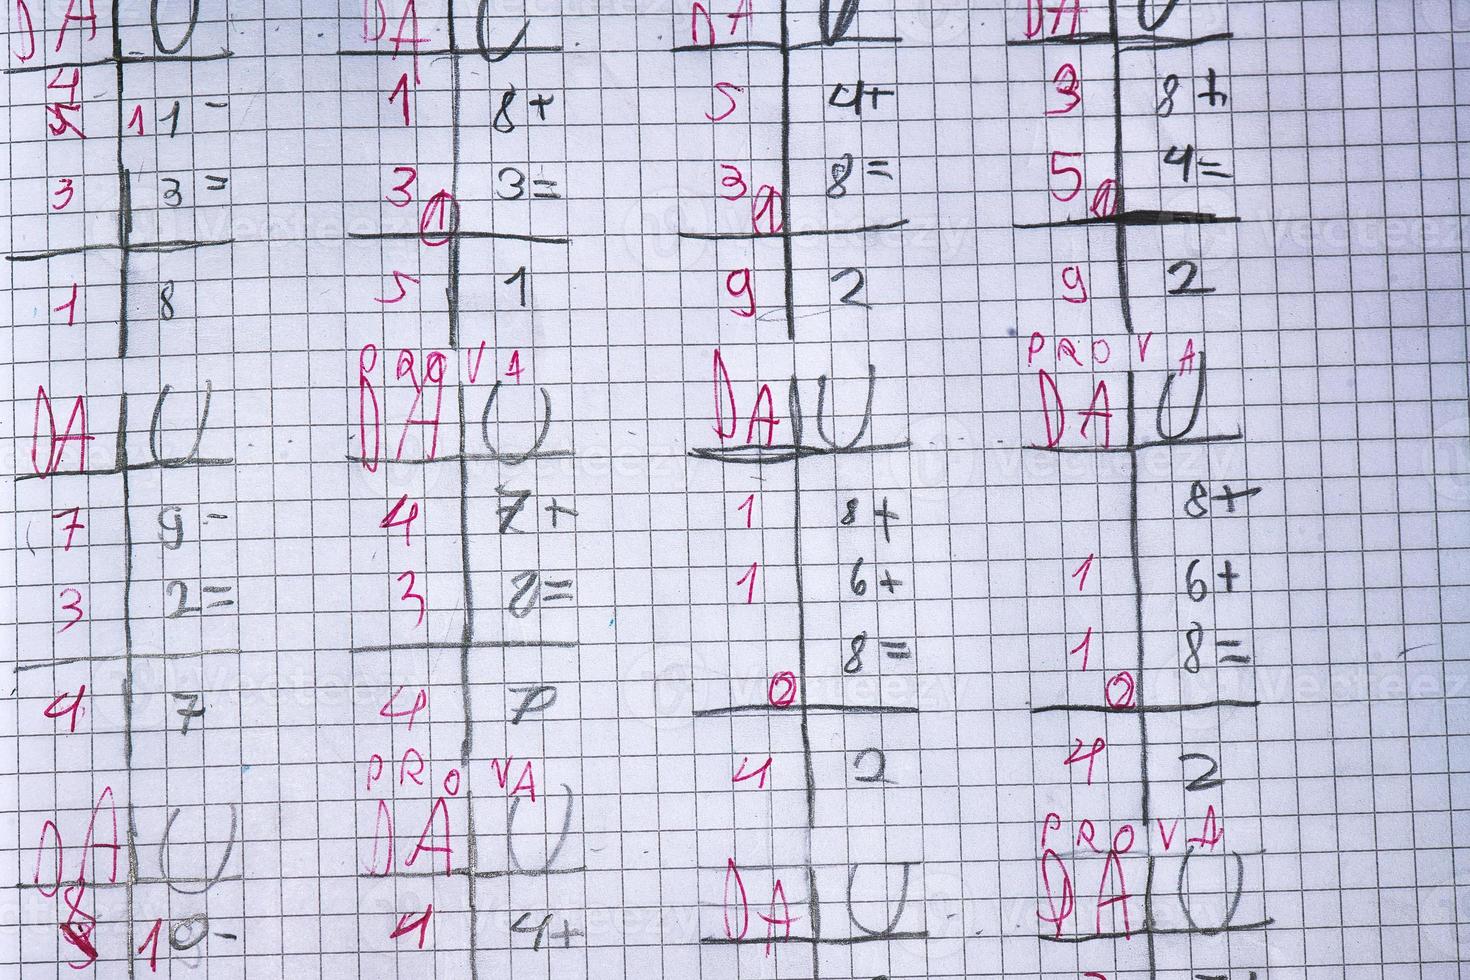 DA U DA U DA U DA U
4
5 11 - 1 8+ 5 4+ 3 8+
3 3= 3 3= 3 8= 5 4=
1 1 1
1 8 5 1 9 2 9 2
PROVA PROVA
DA U DA U DA U DA U
7 9- 4 7+ 1 8+ 8+
3 2= 3 2= 1 6+ 1 6+
8= 1 8=
2 2
4 7 4 7 4 2 4 2
PROVA PROVA
DA U DA U DA U DA U
8
10- 4 4+